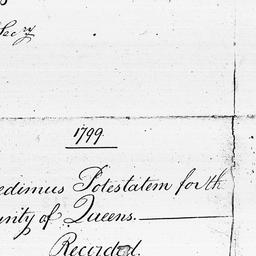 Secry
1799.
edimus Potestatem for th
unity of Queens.
Recorded.